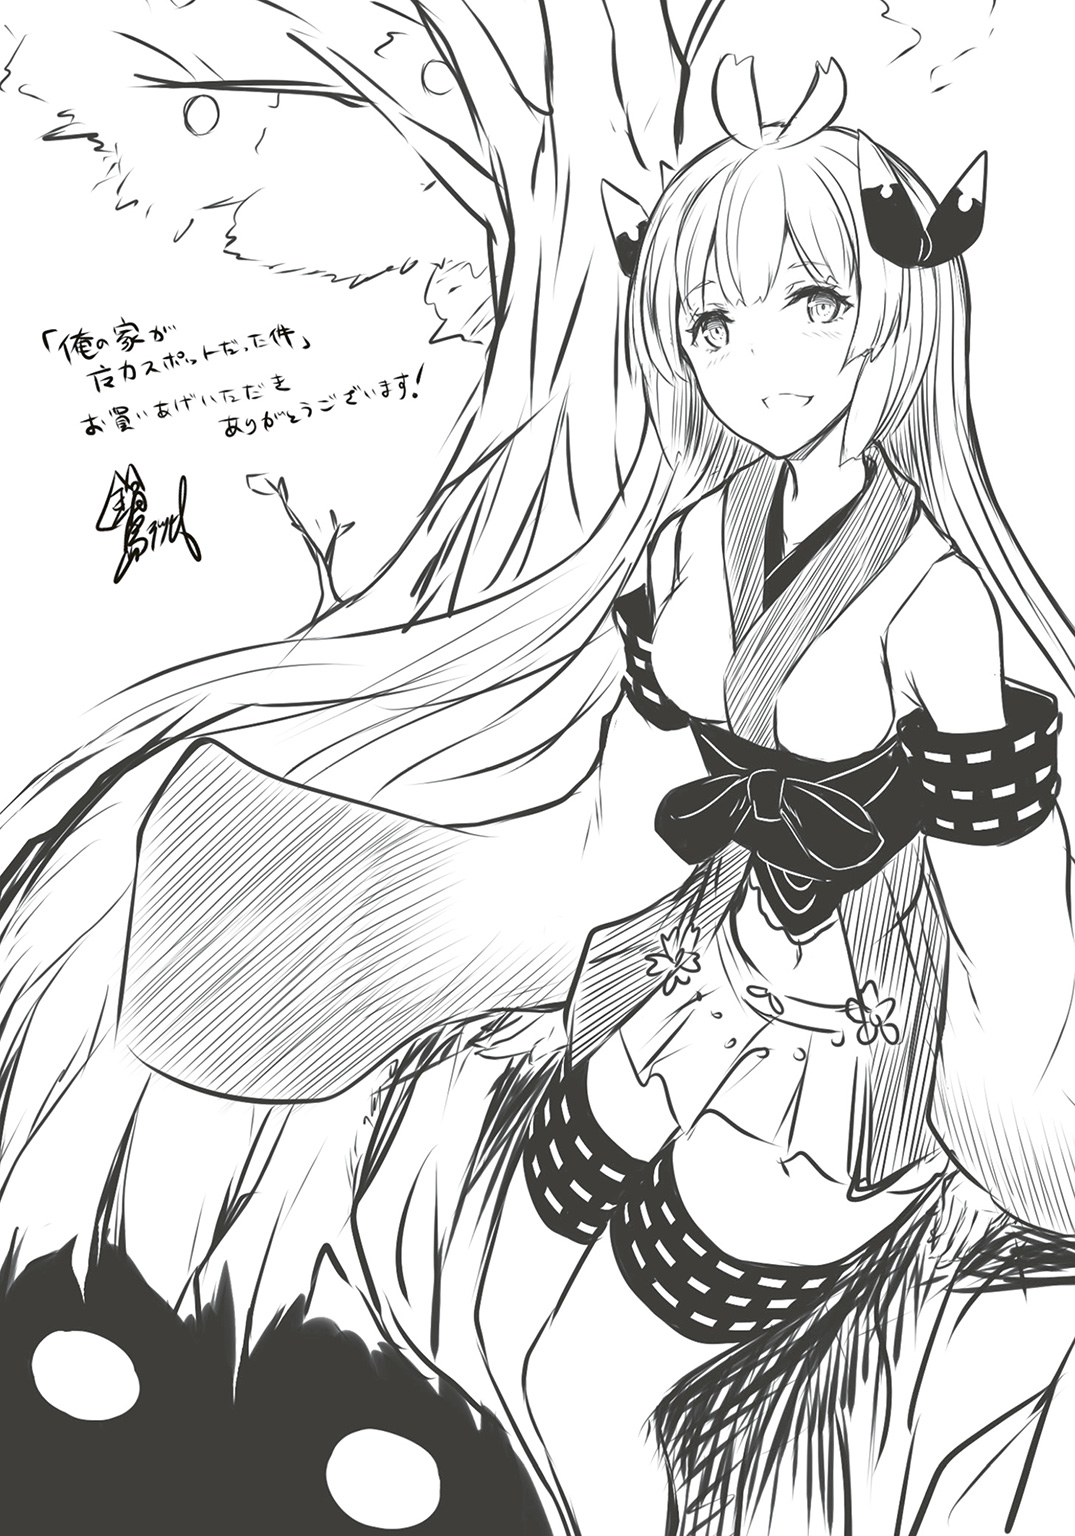 「俺の家が
魔力スポットだった件」
お買いあげいただき
ありがとうございます!
鍋島テツヒロ